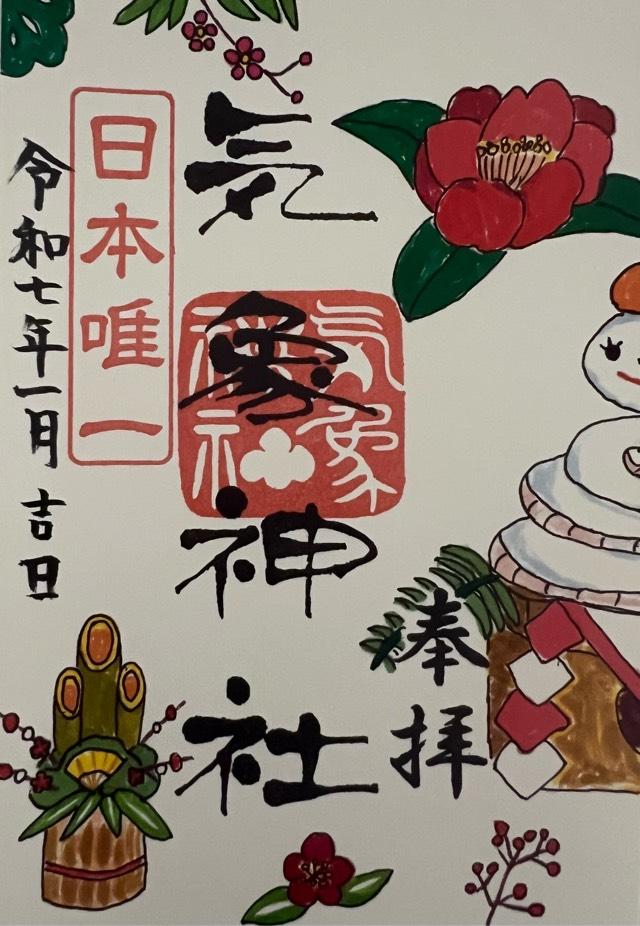 奉拝
気象神社
気象
神社
日本唯一
令和七年一月 吉日